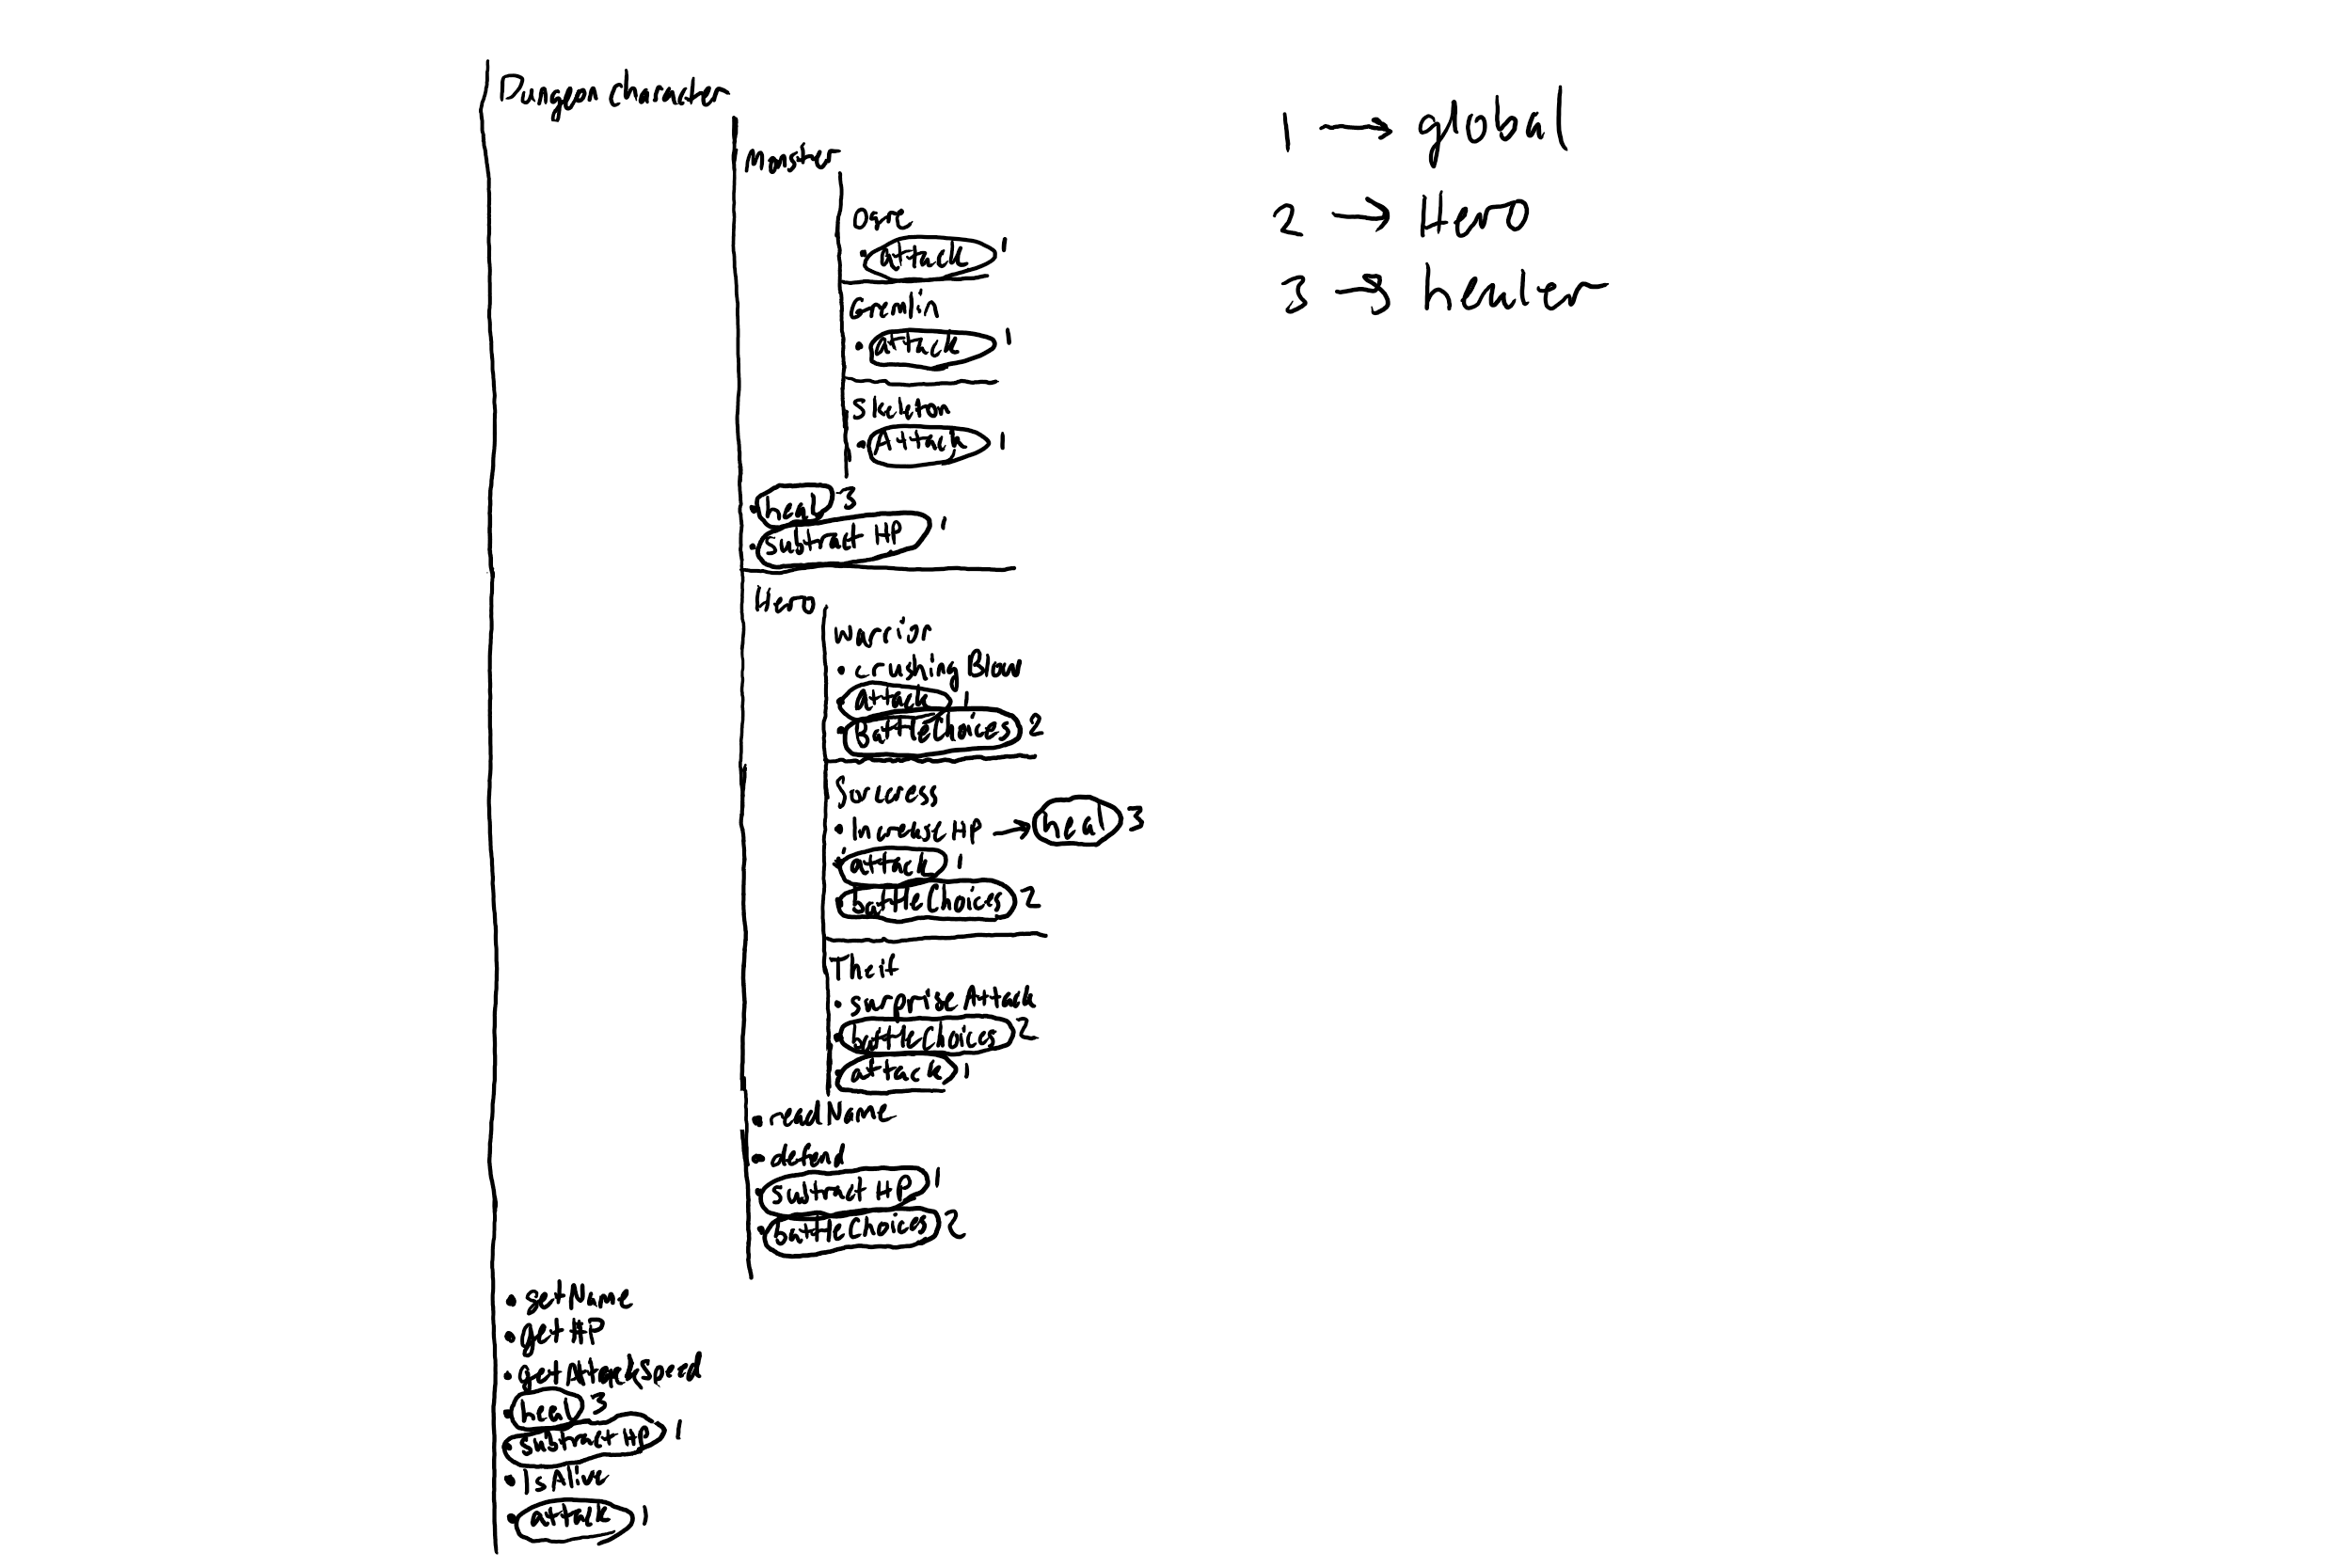 Dungeon character
Monster
Ogre
• attack 1
Gremlin
• attack 1
Skeleton
• Attack 1
• heal 3
• subtract HP 1
Hero
Warrior
• crushing Blow
• attack 1
• BattleChoices 2
Sorceress
• Increase HP → heal 3
• attack 1
• battleChoices 2
Theif
• surprise Attack
• battleChoices 2
• attack 1
• readName
• defend
• subtract HP 1
• battleChoices 2
• getName
• getHP
• getAttackSpeed
• heal 3
• subtract HP 1
• IsAlive
• attack 1
1 → global
2 → Hero
3 → healer